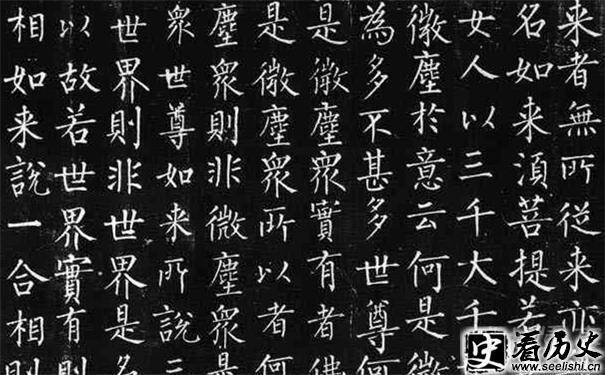 来者無所從来亦
名如来須菩提若
女人以三千大千
微塵於意云何是微
為多不甚多世尊何
是微塵衆實有者佛
是微塵衆所以者何
塵衆則非微塵衆是
衆世尊如来所說三
世界則非世界是名
以故若世界實有則
相如来說一合相則
看历史
www.seelishi.cn